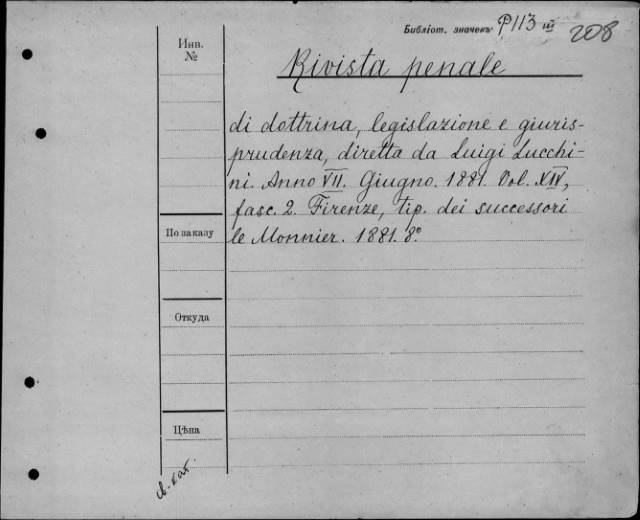 Библіот. значекъ P113 III 208
Инв.
№
Rivista penale
di dottrina, legislazione e giuris-
prudenza, diretta da Luigi Lucchi-
ni. Anno VII. Giugno. 1881. Vol. XIV,
fasc. 2. Firenze, tip. dei successori
le Monnier. 1881. 8º
По заказу
Откуда
Цѣна
кат.